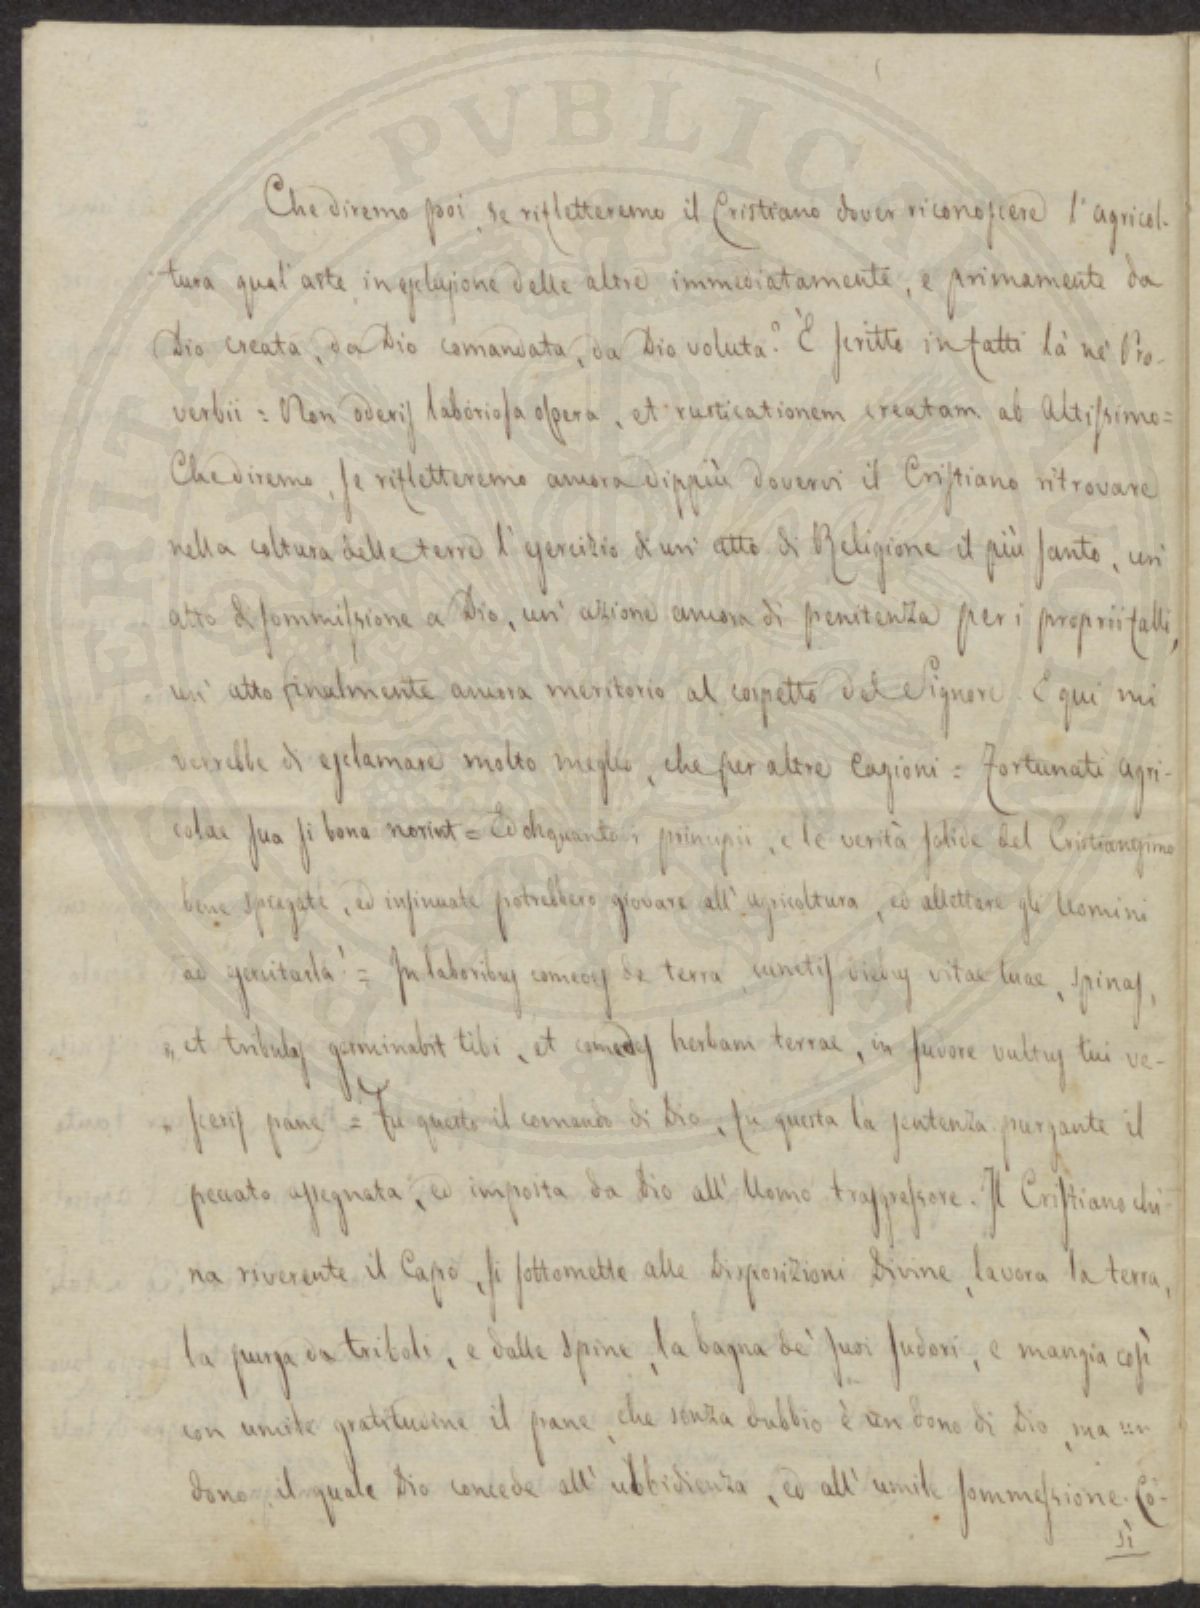 Che diremo poi, se rifletteremo il Cristiano dover riconoscere l'agricol-
tura qual'arte in esclusione delle altre immediatamente, e primamente da
Dio creata, da Dio comandata, da Dio voluta? È scritto infatti là ne' Pro-
verbii = Non oderis laboriosa opera, et rusticationem creatam ab Altissimo =
Che diremo, se rifletteremo ancora dippiù dovervi il Cristiano ritrovare
nella coltura delle terre l'esercizio d'un' atto di Religione il più santo, un'
atto di sommissione a Dio, un' azione ancora di penitenza per i proprii falli,
un' atto finalmente ancora meritorio al cospetto del Signore. E qui mi
verrebbe di esclamare molto meglio, che per altre cagioni = Fortunati agri-
colae sua si bona norint = Ed oh quanto i principii, e le verità solide del Cristianesimo
bene spiegate, ed insinuate potrebbero giovare all' agricoltura, ed allettare gli Uomini
ad esercitarla! = In laboribus comedes de terra cunctis diebus vitae tuae, spinas,
" et tribulos germinabit tibi, et comedes herbam terrae, in sudore vultus tui ve-
" sceris pane = Fu questo il comando di Dio, fu questa la sentenza purgante il
peccato assegnata, ed imposta da Dio all' Uomo trasgressore. Il Cristiano chi-
na riverente il Capo, si sottomette alle Disposizioni Divine, lavora la terra,
la purga da triboli, e dalle spine, la bagna de' suoi sudori, e mangia così
con umile gratitudine il pane, che senza dubbio è un dono di Dio, ma un
dono, il quale Dio concede all' ubbidienza, ed all' umile sommessione. Co-
sì
PERITATI PVBLICAE